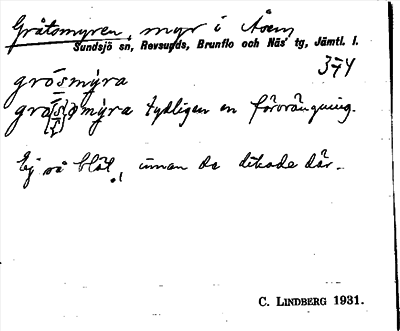 Gråtomyren, myr i Åsen
Sundsjö sn, Revsunds, Brunflo och Näs' tg, Jämtl. l.
374
grósmỳra
mỳra tydligen en förvrängning.
Ej så blöt, innan de dikade där.
C. LINDBERG 1931.